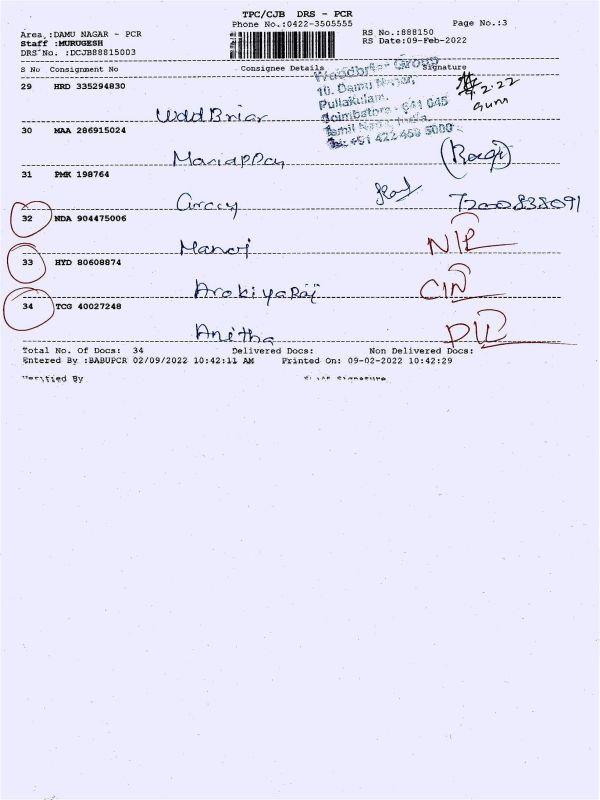 TPC/CJB DRS - PCR
Phone No.:0422-3505555
Page No.:3
Area :DAMU NAGAR - PCR
RS No.:888150
Staff :MURUGESH
RS Date:09-Feb-2022
DRS No. :DCJB88815003
S No Consignment No Consignee Details Signature
Woodbriar Group
10, Damu Nagar,
Pullakulam,
Coimbatore - 641 045
Tamil Nadu, India.
Tel: +91 422 459 5000
29 HRD 335294830
30 MAA 286915024
Mariappan
31 PMK 198764
7200838091
32 NDA 904475006
Manoj
33 HYD 80608874
Arokiya Raj
34 TCG 40027248
Anitha
Total No. Of Docs: 34 Delivered Docs: Non Delivered Docs:
Entered By :BABUPCR 02/09/2022 10:42:11 AM Printed On: 09-02-2022 10:42:29
Verified By